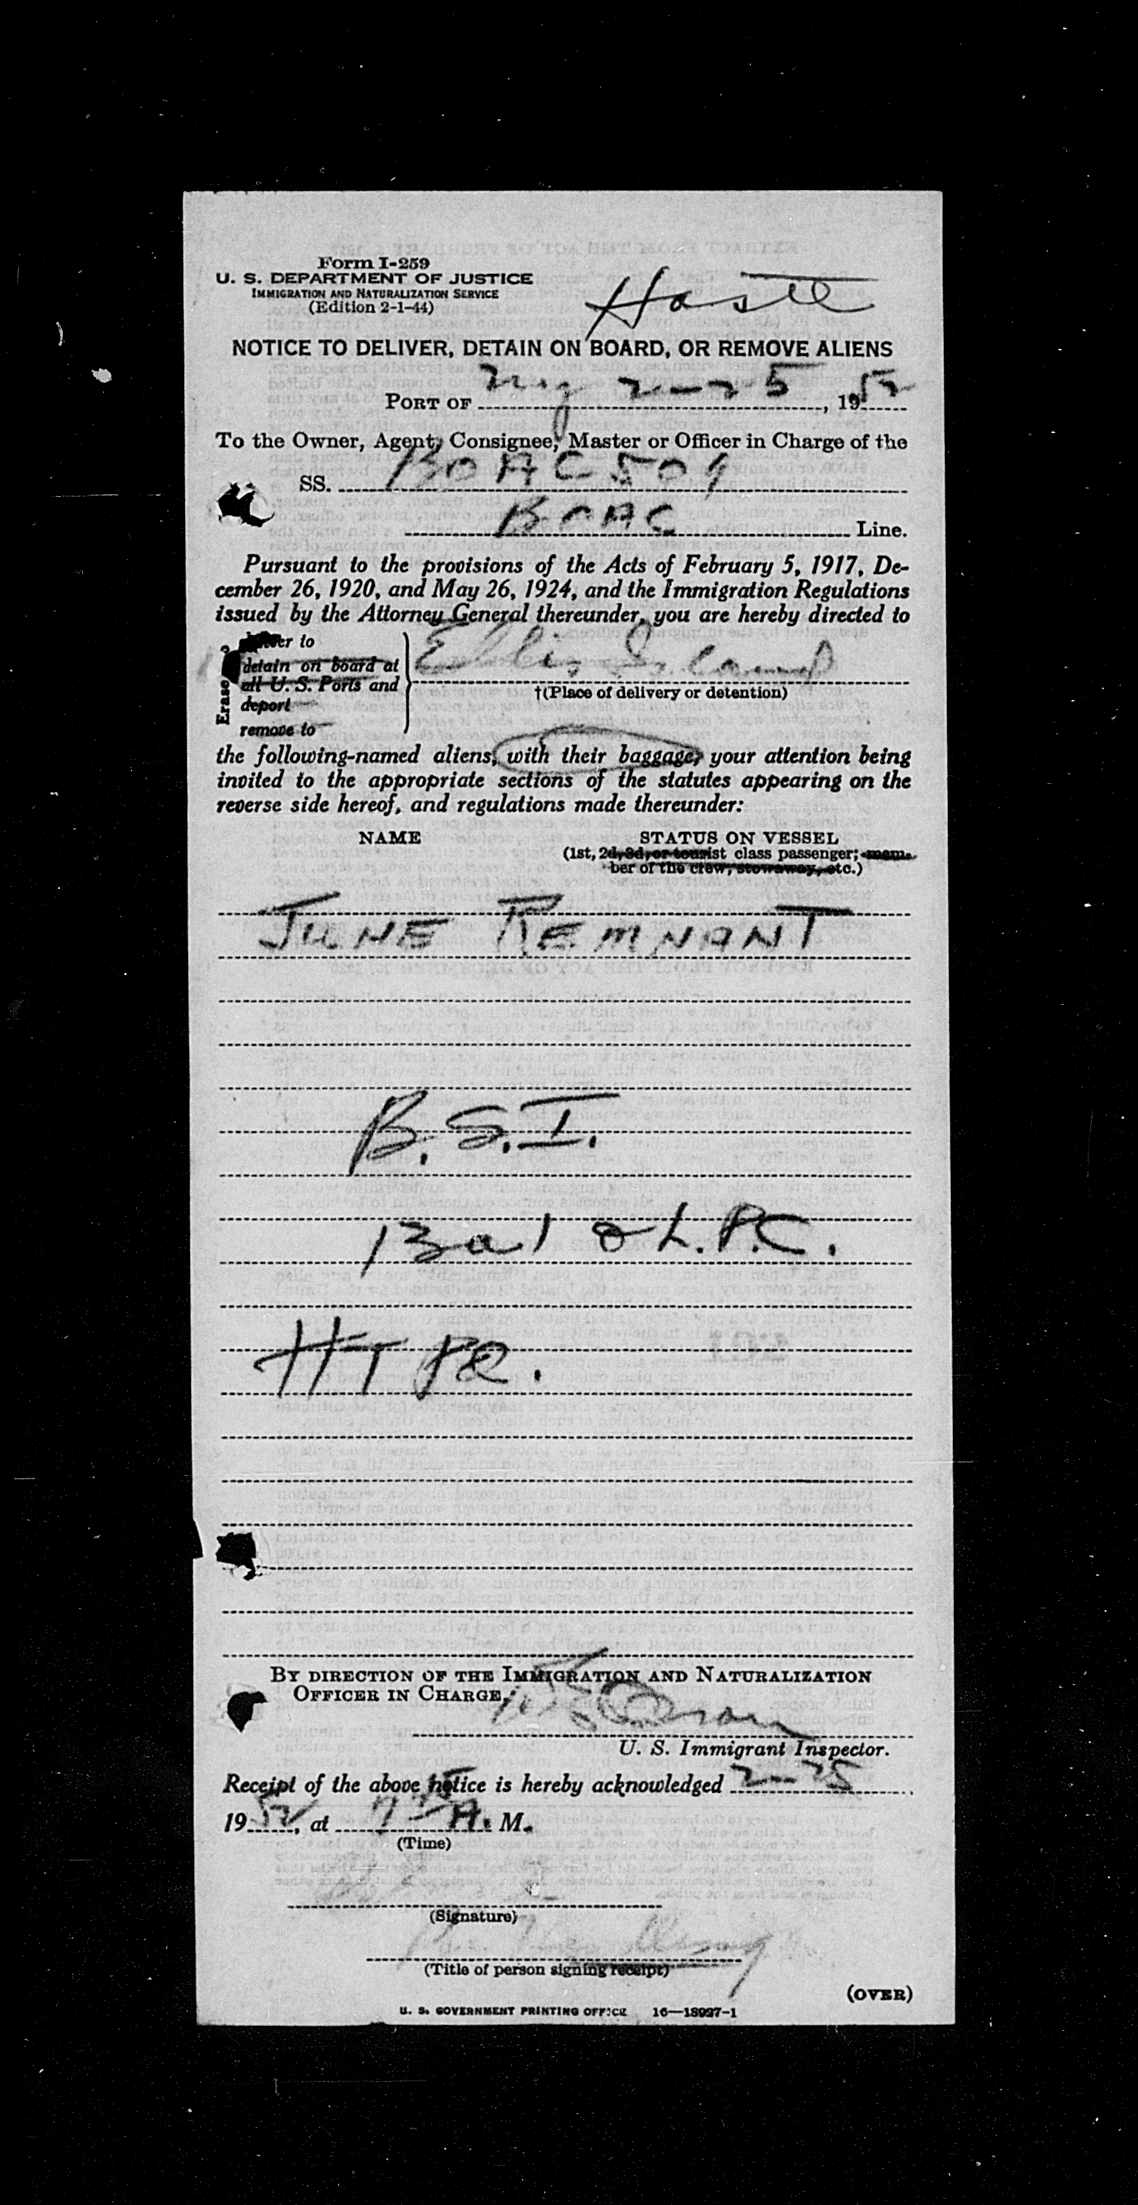 Form I-259
U. S. DEPARTMENT OF JUSTICE
IMMIGRATION AND NATURALIZATION SERVICE
(Edition 2-1-44)
NOTICE TO DELIVER, DETAIN ON BOARD, OR REMOVE ALIENS
PORT OF NY 2-25, 1952
To the Owner, Agent, Consignee, Master or Officer in Charge of the
SS. BOAC 509
BOAC Line.
Pursuant to the provisions of the Acts of February 5, 1917, De-
cember 26, 1920, and May 26, 1924, and the Immigration Regulations
issued by the Attorney General thereunder, you are hereby directed to
deliver to
detain on board at
all U. S. Ports and
deport
remove to
Erase
Ellis Island
†(Place of delivery or detention)
the following-named aliens, with their baggage, your attention being
invited to the appropriate sections of the statutes appearing on the
reverse side hereof, and regulations made thereunder:
NAME STATUS ON VESSEL
(1st, 2d, 3d, or tourist class passenger; mem-
ber of the crew, stowaway, etc.)
JUNE REMNANT
B.S.I.
Bal & L.P.C.
HT PR.
BY DIRECTION OF THE IMMIGRATION AND NATURALIZATION
OFFICER IN CHARGE,
U. S. Immigrant Inspector.
Receipt of the above notice is hereby acknowledged 2-25
1952, at A. M.
(Time)
(Signature)
(Title of person signing receipt)
(OVER)
U. S. GOVERNMENT PRINTING OFFICE 16—18927-1